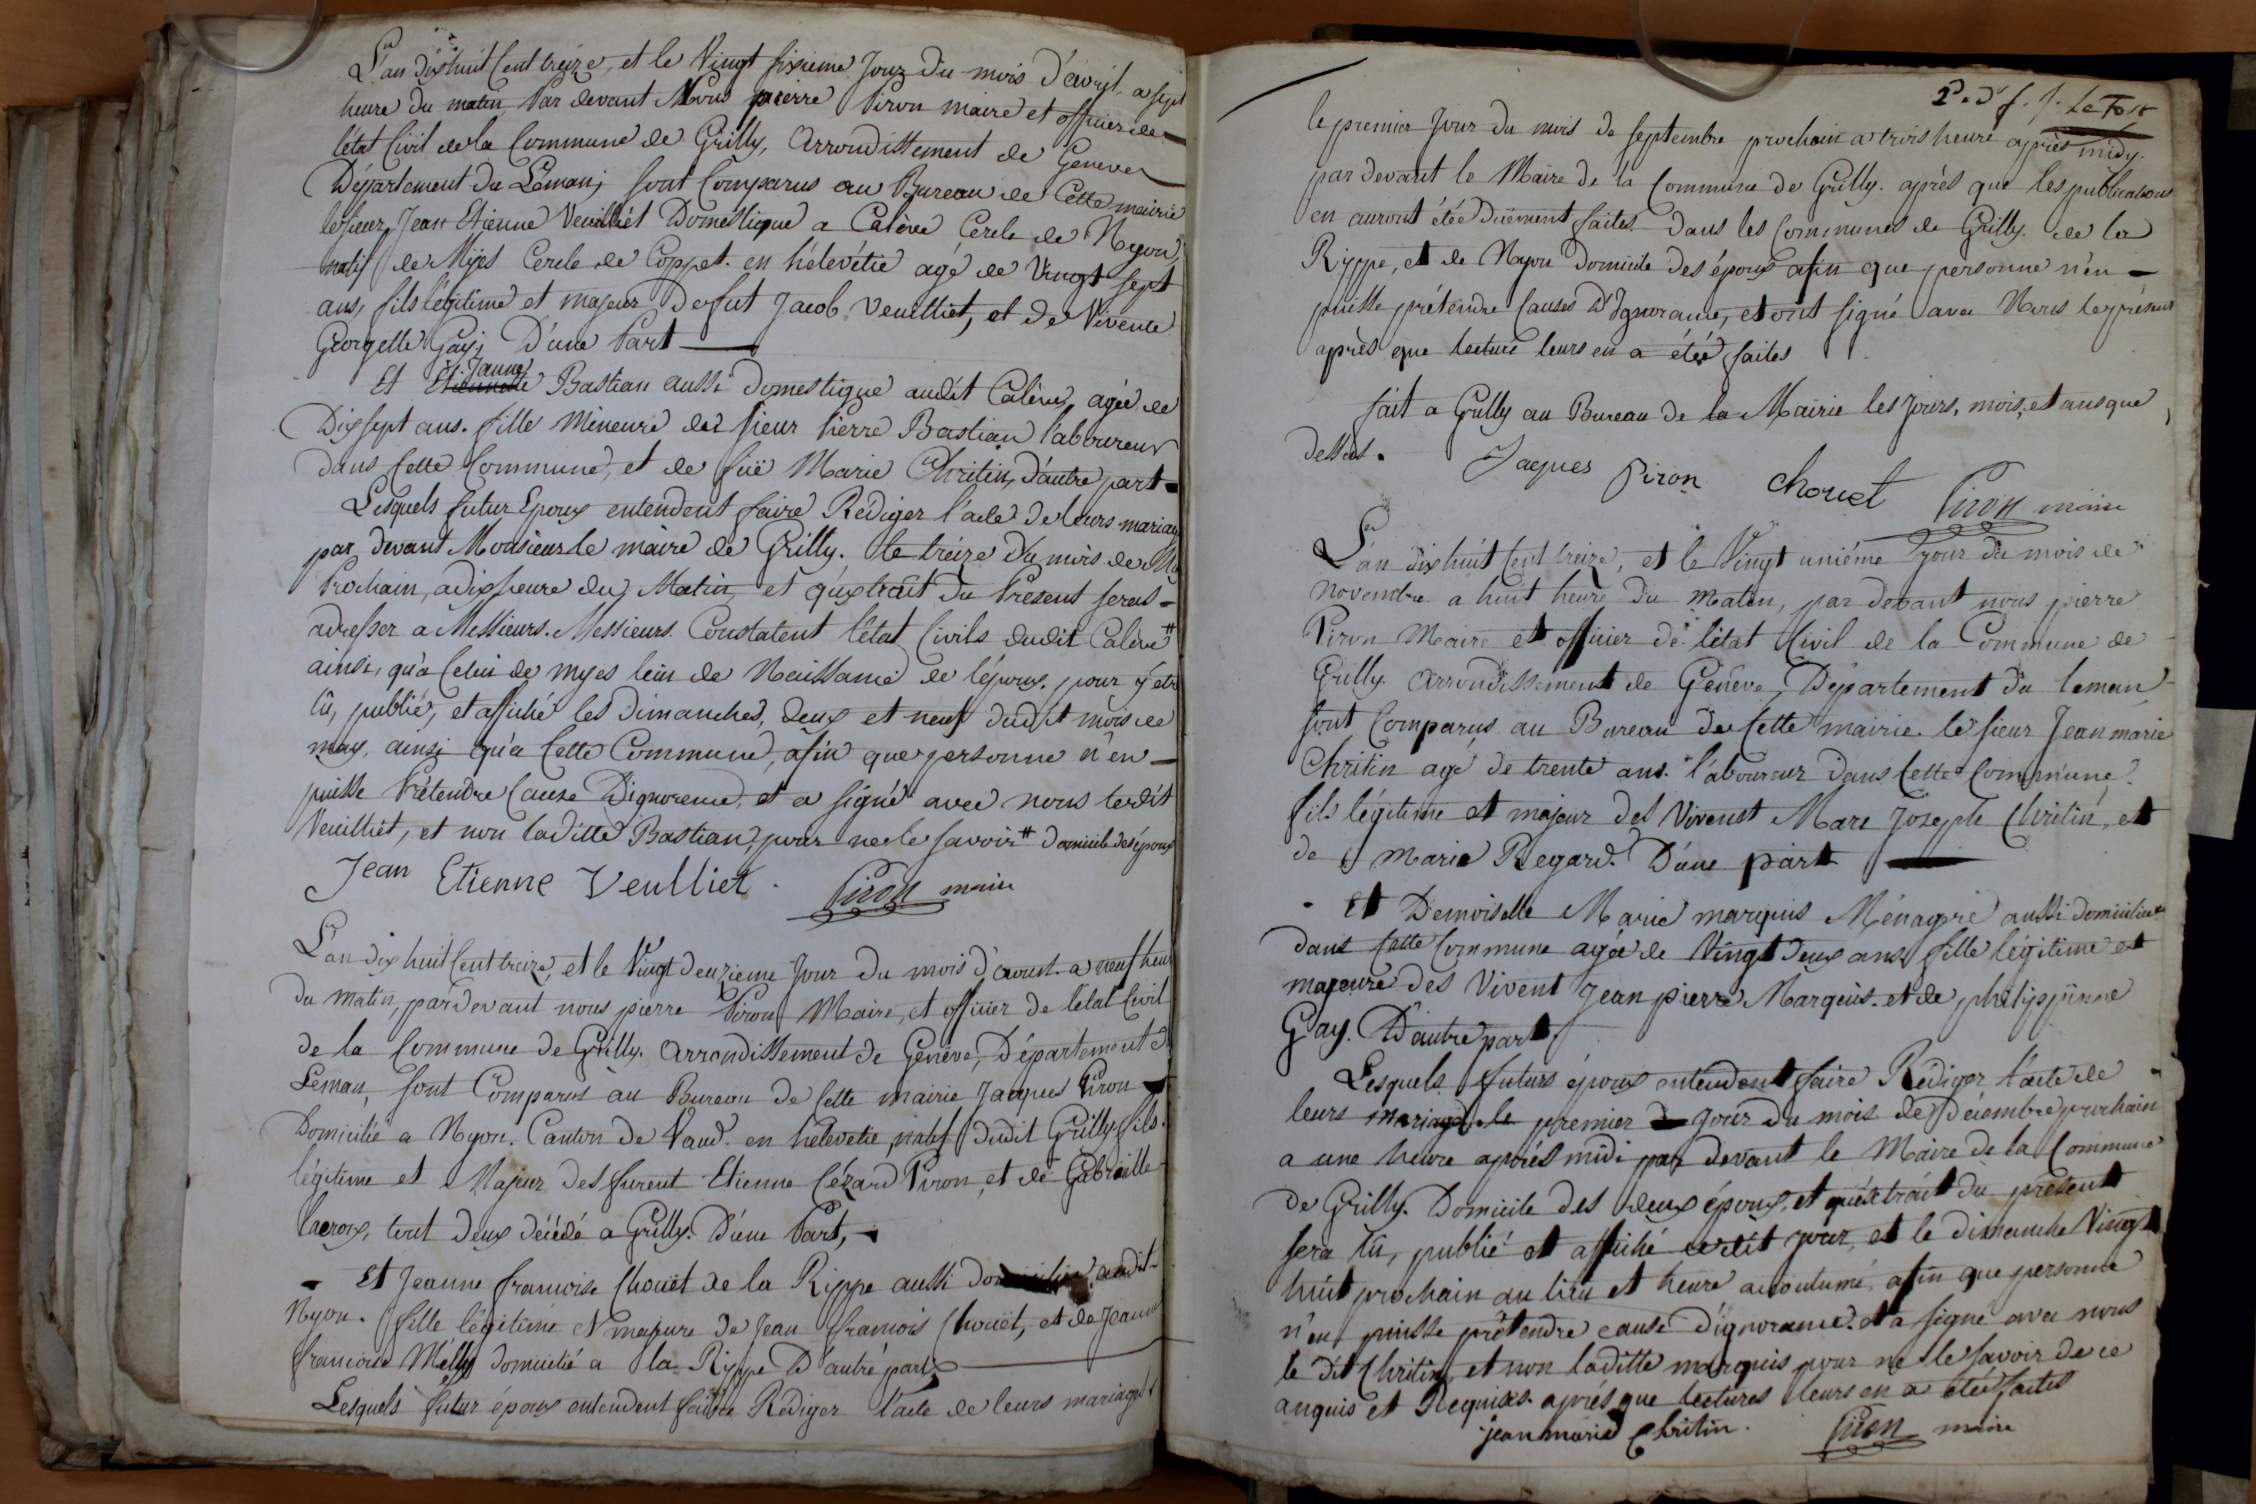 L'an dixhuit Cent treize, et le Vingt sixieme Jour du mois d'avril, a sept
heure du matin, Par devant Nous pierre Piron maire et officier de
l'état Civil de la Commune de Grilly, arrondissement de Geneve
Département du Léman, sont Comparus au Bureau de Cette mairie
le sieur Jean Etienne Veuilliet Domestique a Calève Cercle de Nyon,
natif de Mijes Cercle de Coppet en hélevétie agé de Vingt sept
ans, fils légitime et majeur de fut Jacob Veuilliet, et de Vivente
Georgette Gay, D'une Part
Et Jeanne Bastian aussi Domestique audit Calève, agée de
Dix sept ans. fille Mineure de sieur Pierre Bastian laboureur
dans Cette Commune, et de füe Marie Chritin, d'autre part
Lesquels futur Epoux entendent faire Rédiger l'acte de leurs mariage
par devant Monsieur le maire de Grilly. le treize du mois de May
Prochain, a dix heure du Matin, et qu'extrait du Présent seras
adresser a Messieurs. Messieurs Constatent l'état Civils dudit Calève #
ainsi, qu'a Celui de myes lieu de Naissance de l'époux, pour y être
lû, publié, et affiché les Dimanches, deux et neuf dudit mois de
may, ainsi qu'a Cette Commune, afin que personne n'en
puisse Prétendre Cause D'ignorence, et a signé avec nous ledit
Veuilliet, et non laditte Bastian, pour ne le savoir # domicile des époux
Jean Etienne Veulliet. Piron maire
L'an dix huit Cent treize, et le Vingt deuzieme Jour du mois d'aoust a neuf heure
du matin, par devant nous pierre Piron Maire, et officier de l'état Civil
de la Commune de Grilly. arrondissement de Genève, Département du
Léman, sont Comparus au Bureau de Cette mairie Jacques Piron
Domicilié a Nyon. Canton de Vaud. en hélevetie, natif dudit Grilly, fils
légitime et Majeur des furent Etienne Cézard Piron, et de Gabrielle
lacroix, tout deux décédé a Grilly. D'une Part,
Et Jeanne francoise Chouët de la Rippe aussi domiciliée audit
Nyon. fille légitime et majeure de Jean francois Chouët, et de Jeanne
francoise Melly domicilié a la Rippe D'autre part
Lesquels futur époux entendent faire Rédiger l'acte de leurs mariage
P. d f. f. Le Fort
le premier Jour du mois de septembre prochain a trois heure après midy.
par devant le Maire de la Commune de Grilly. après que les publications
en auront étée dûement faites. Dans les Communes de Grilly. de la
Rippe, et de Nyon domicile des époux afin que personne n'en
puisse prétendre Causes D'Ignorance, et ont signé avec Nous le présent
après que lecture leurs en a étée faites
fait a Grilly au Bureau de la Mairie les Jours, mois, et ans que
dessus.
Jaques Piron Chouet Piron maire
L'an dixhuit Cent treize, et le Vingt unième Jour du mois de
Novembre a huit heure du matin, par devant nous pierre
Piron Maire et officier de l'état Civil de la Commune de
Grilly. arrondissement de Genêve, Département du leman
sont Comparus au Bureau de Cette mairie le sieur Jean marie
Chritin agé de trente ans. laboureur dans Cette Commune,
fils légitime et majeur des Vivenst Marc Joseph Chritin, et
de Marie Regard. D'une part
Et Demoiselle Marie marquis Ménagère aussi domiciliée
dans Cette Commune agée de Vingt Deux ans, fille légitime et
majeure des Vivent Jean pierre Marquis. et de philippinne
Gay. D'autre part.
Lesquels futurs époux entendent faire Rédiger l'acte de
leurs mariage le premier jour du mois de Décembre prochain
a une heure aprés midi par devant le Maire de la Commune
de Grilly. Domicile des deux époux, et qu'extrait du présent
sera lû, publié et affiché cedit jour, et le dimanche Vingt
huit prochain au lieu et heure accoutumé, afin que personne
n'en puisse prétendre cause d'ignorance. et a signé avec nous
le dit Chritin, et non laditte marquis pour ne le savoir de ce
anquis et Requises. aprés que lectures leurs en a étée faites
jean marie Chritin. Piron maire